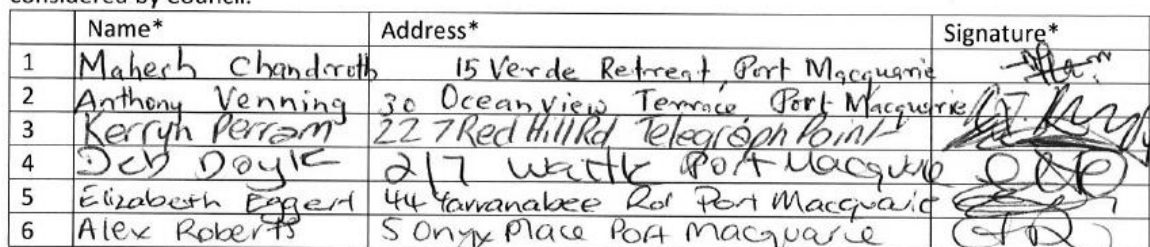 considered by Council.
Name* Address* Signature*
1 Mahesh Chandroth 15 Verde Retreat, Port Macquarie
2 Anthony Venning 30 Ocean View Terrace Port Macquarie
3 Kerryn Perram 227 Red Hill Rd Telegraph Point
4 Deb Doyle 2/7 Wattle Port Macquarie
5 Elizabeth Eggert 44 Yarranabee Rd Port Macquarie
6 Alex Roberts 5 Onyx Place Port Macquarie